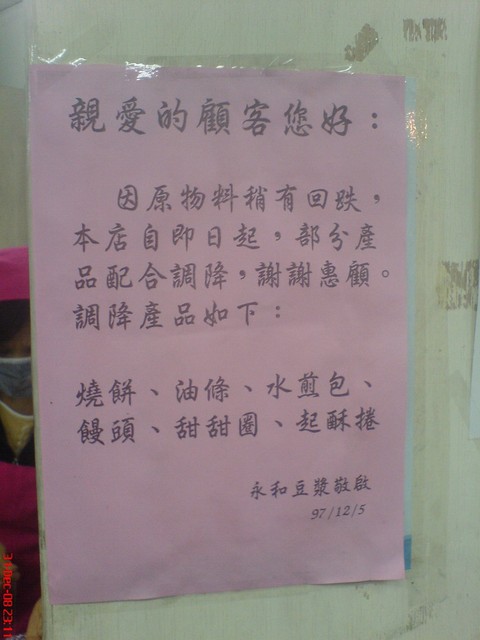 親愛的顧客您好：
因原物料稍有回跌，
本店自即日起，部分產
品配合調降，謝謝惠顧。
調降產品如下：
燒餅、油條、水煎包、
饅頭、甜甜圈、起酥捲
永和豆漿敬啟
97/12/5